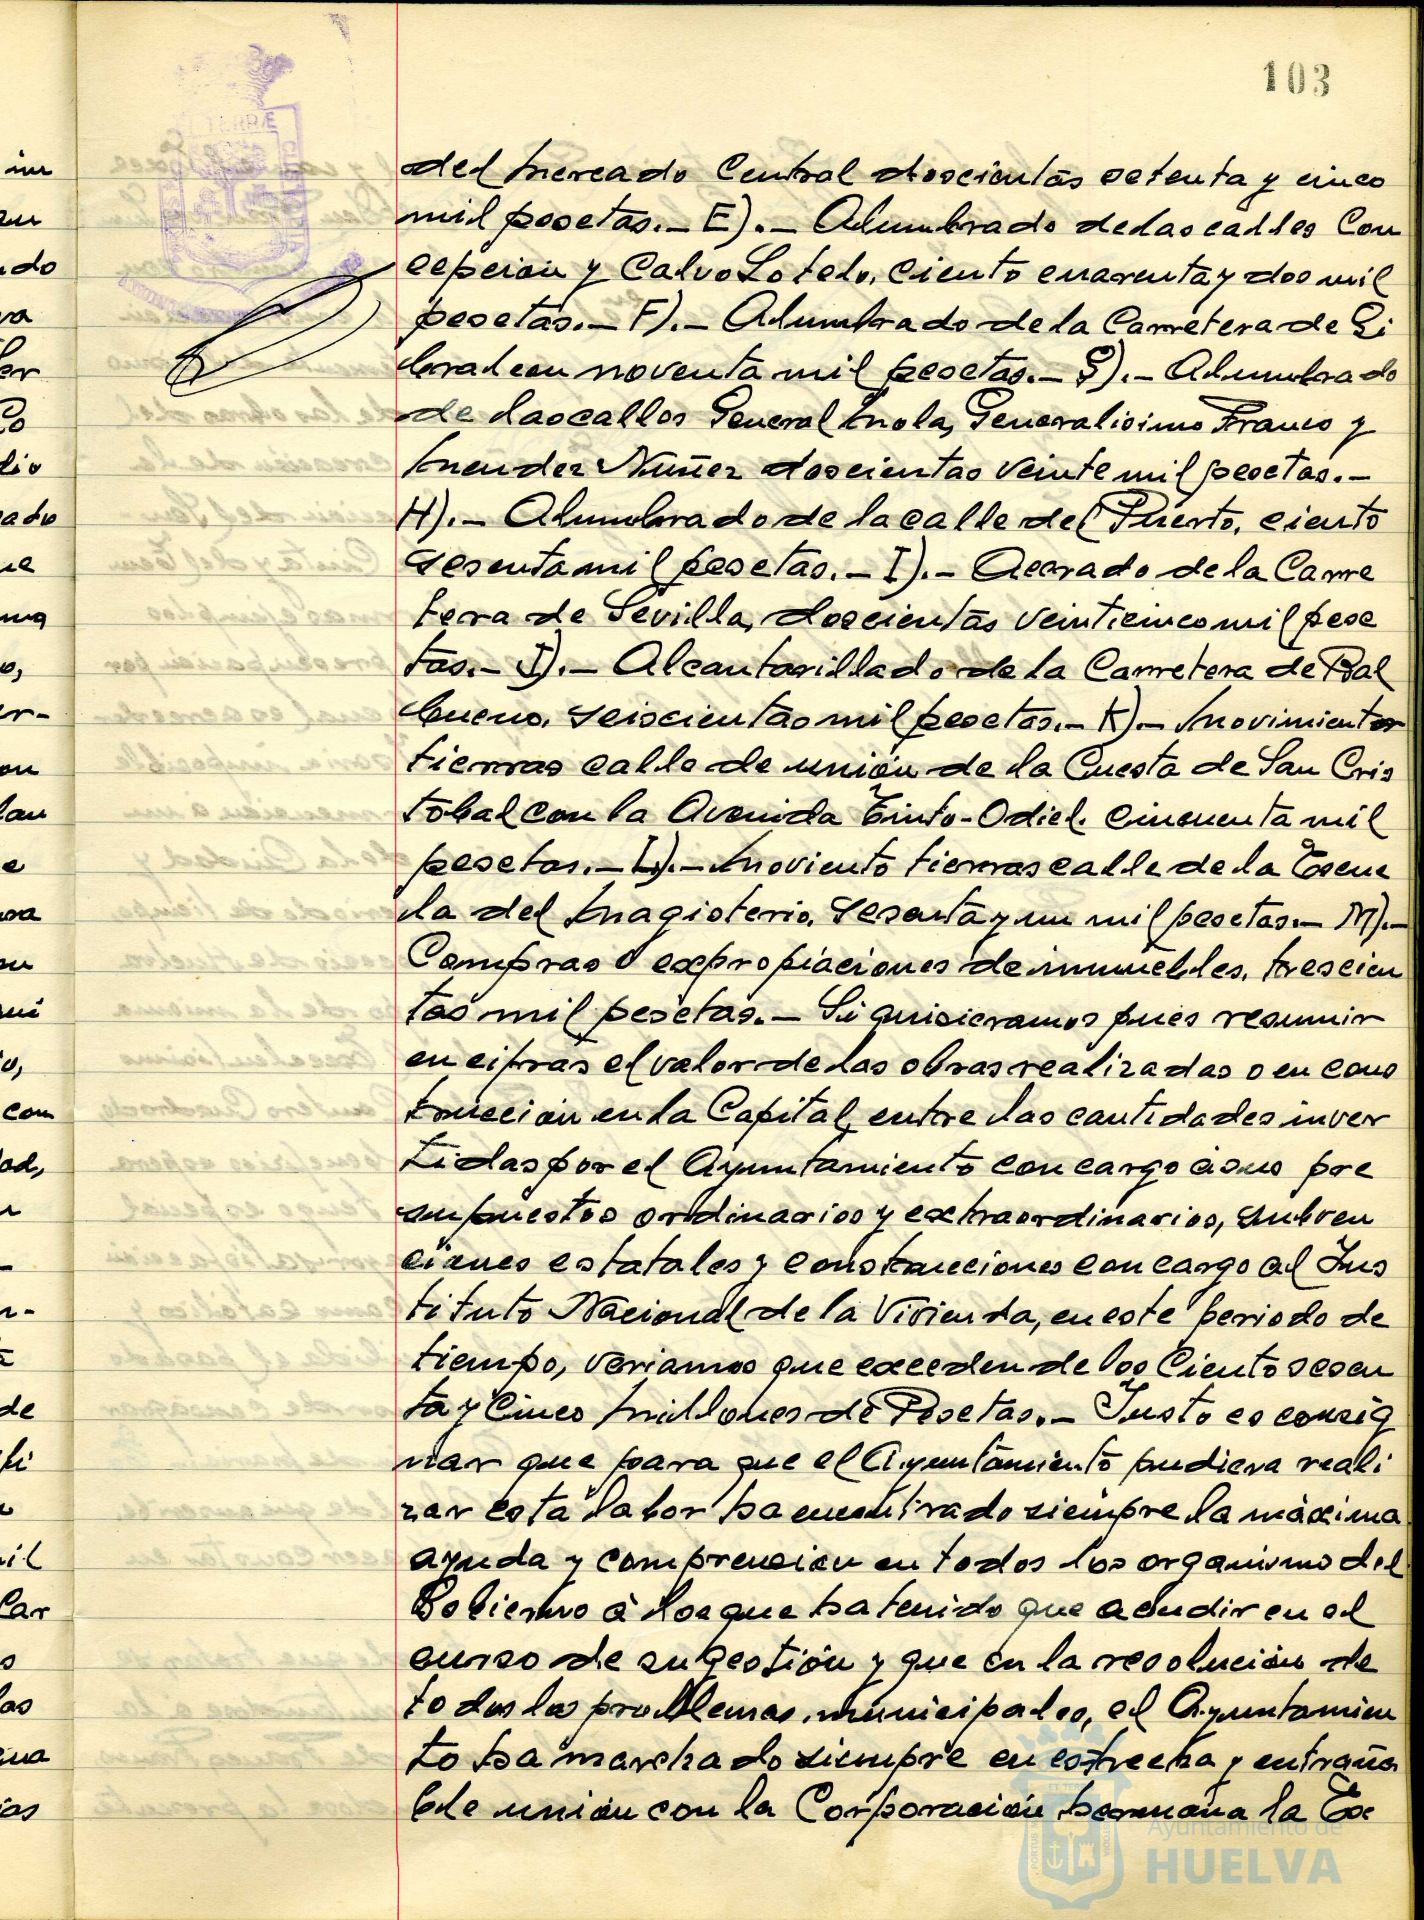 103
del Mercado Central doscientas setenta y cinco
mil pesetas.- E).- Alumbrado de las calles Con
cepción y Calvo Sotelo, ciento cuarenta y dos mil
pesetas.- F).- Alumbrado de la Carretera de Gi
braleon noventa mil pesetas.- G).- Alumbrado
de las calles General Mola, Generalisimo Franco y
Mendez Nuñez doscientas veinte mil pesetas.-
H).- Alumbrado de la calle del Puerto, ciento
sesenta mil pesetas.- I).- Acerado de la Carre
tera de Sevilla, doscientas veinticinco mil pese
tas.- J).- Alcantarillado de la Carretera de Bal
bueno, seiscientas mil pesetas.- K)- Movimientos
tierras calle de unión de la Cuesta de San Cris
tobal con la Avenida Tinto-Odiel. cincuenta mil
pesetas.- L).- Moviento tierras calle de la Escue
la del Magisterio, sesenta y un mil pesetas.- M).-
Compras o expropiaciones de inmuebles, trescien
tas mil pesetas.- Si quisieramos pues resumir
en cifras el valor de las obras realizadas o en cons
trucción en la Capital, entre las cantidades inver
tidas por el Ayuntamiento con cargo á sus pre
supuestos ordinarios y extraordinarios, subven
ciones estatales y construcciones con cargo al Ins
tituto Nacional de la Vivienda, en este periodo de
tiempo, veriamos que exceden de los Ciento sesen
ta y Cinco Millones de Pesetas.- Justo es consig
nar que para que el Ayuntamiento pudiera reali
zar esta labor ha encontrado siempre la máxima
ayuda y comprension en todos los organismo del
Gobierno á los que ha tenido que acudir en el
curso de su gestión y que en la resolución de
todos los problemas municipales, el Ayuntamien
to ha marchado siempre en estrecha y entraña
ble unión con la Corporación hermana la Ex
Ayuntamiento de
HUELVA